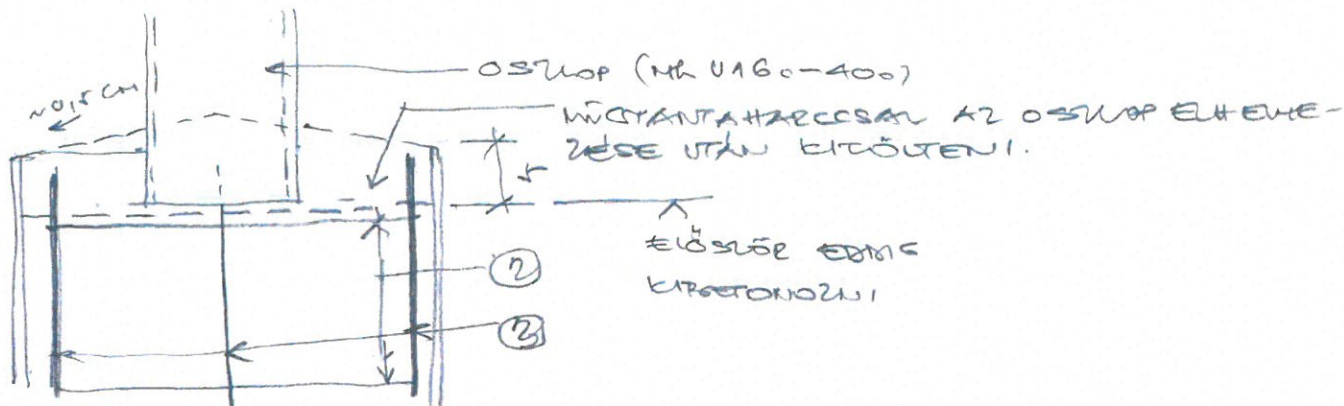 OSZLOP (MK U160-400)
MŰGYANTAHABARCCSAL AZ OSZLOP ELHELYE-
ZÉSE UTÁN KITÖLTENI.
~0,5 CM
5
ELŐSZÖR EDDIG
KIBETONOZNI
2